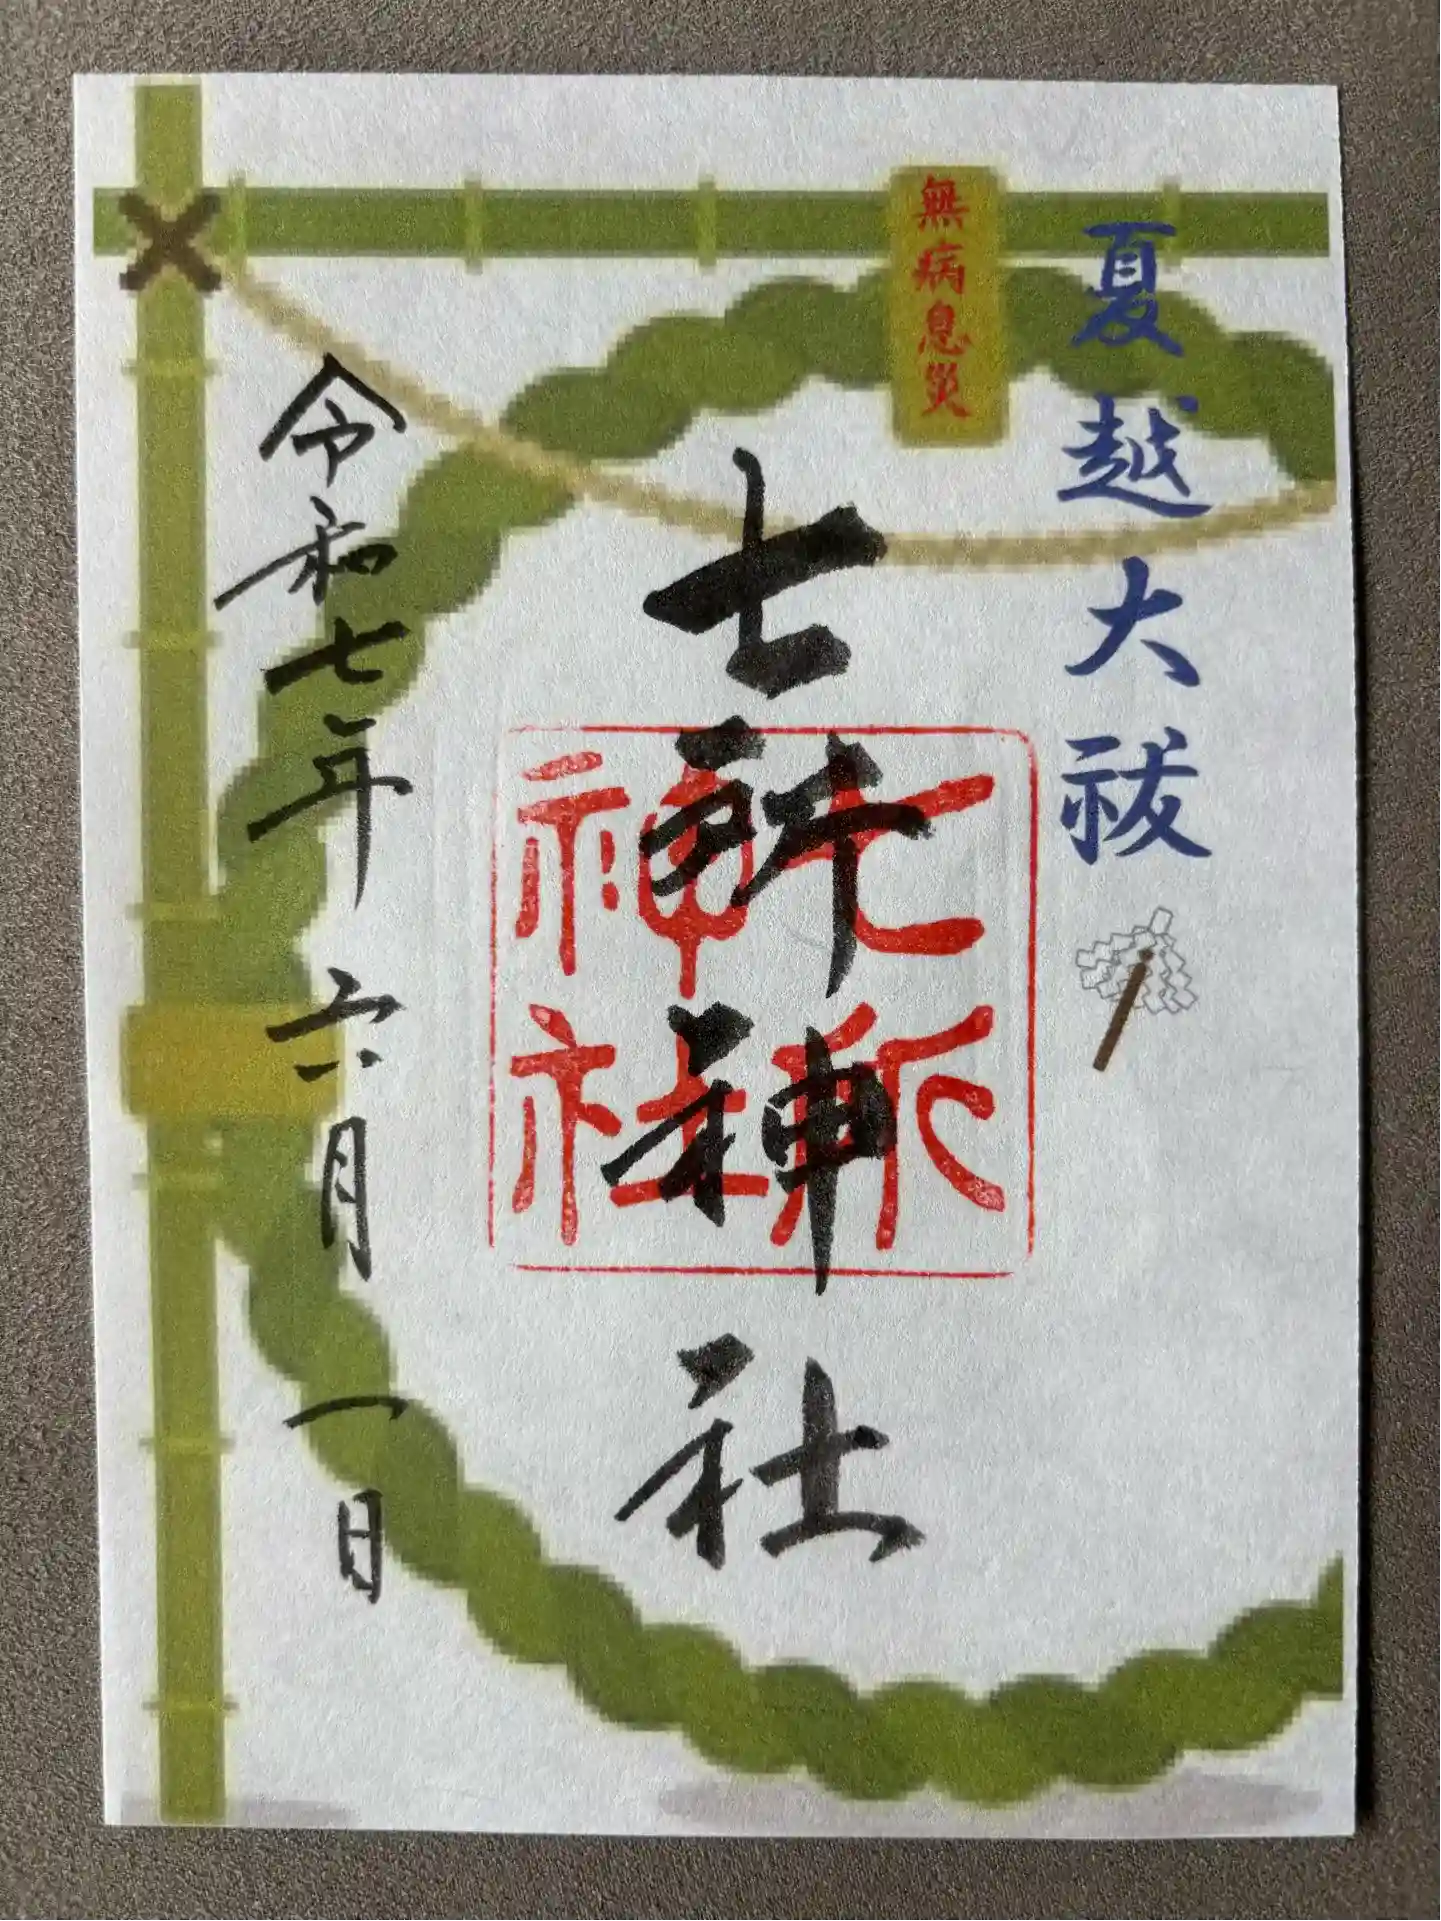 夏越大祓
無病息災
七所神社
七所
神社
令和七年六月一日